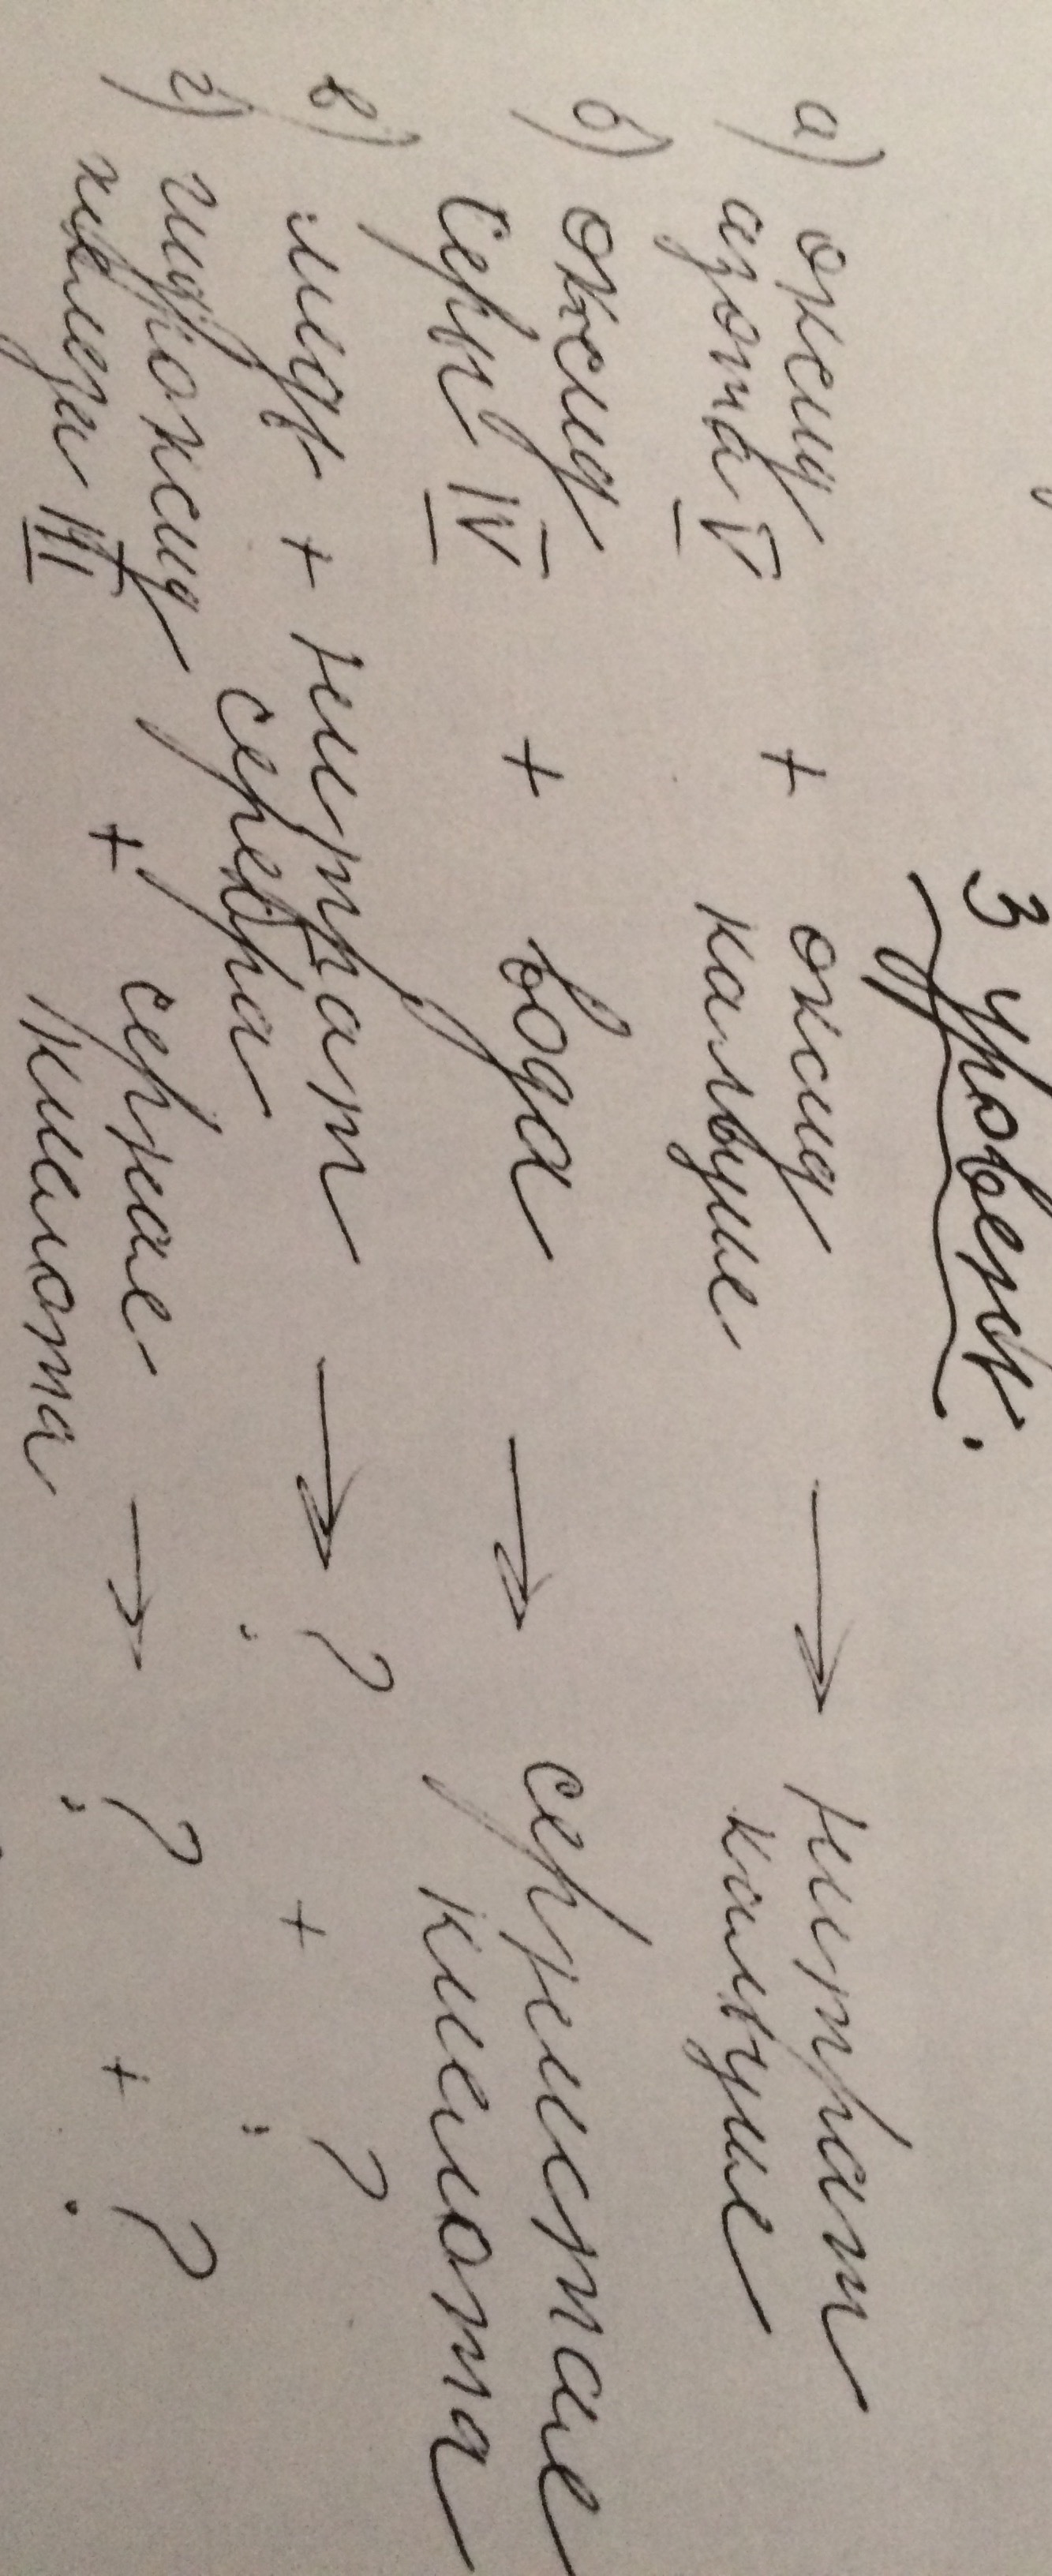 3 уровень.
а) оксид + оксид → нитрат
азота V кальция кальция
б) оксид + вода → сернистая
серы IV кислота
в) медь + нитрат → ? + ?
серебра
г) гидроксид + серная → ? + ?
железа III кислота